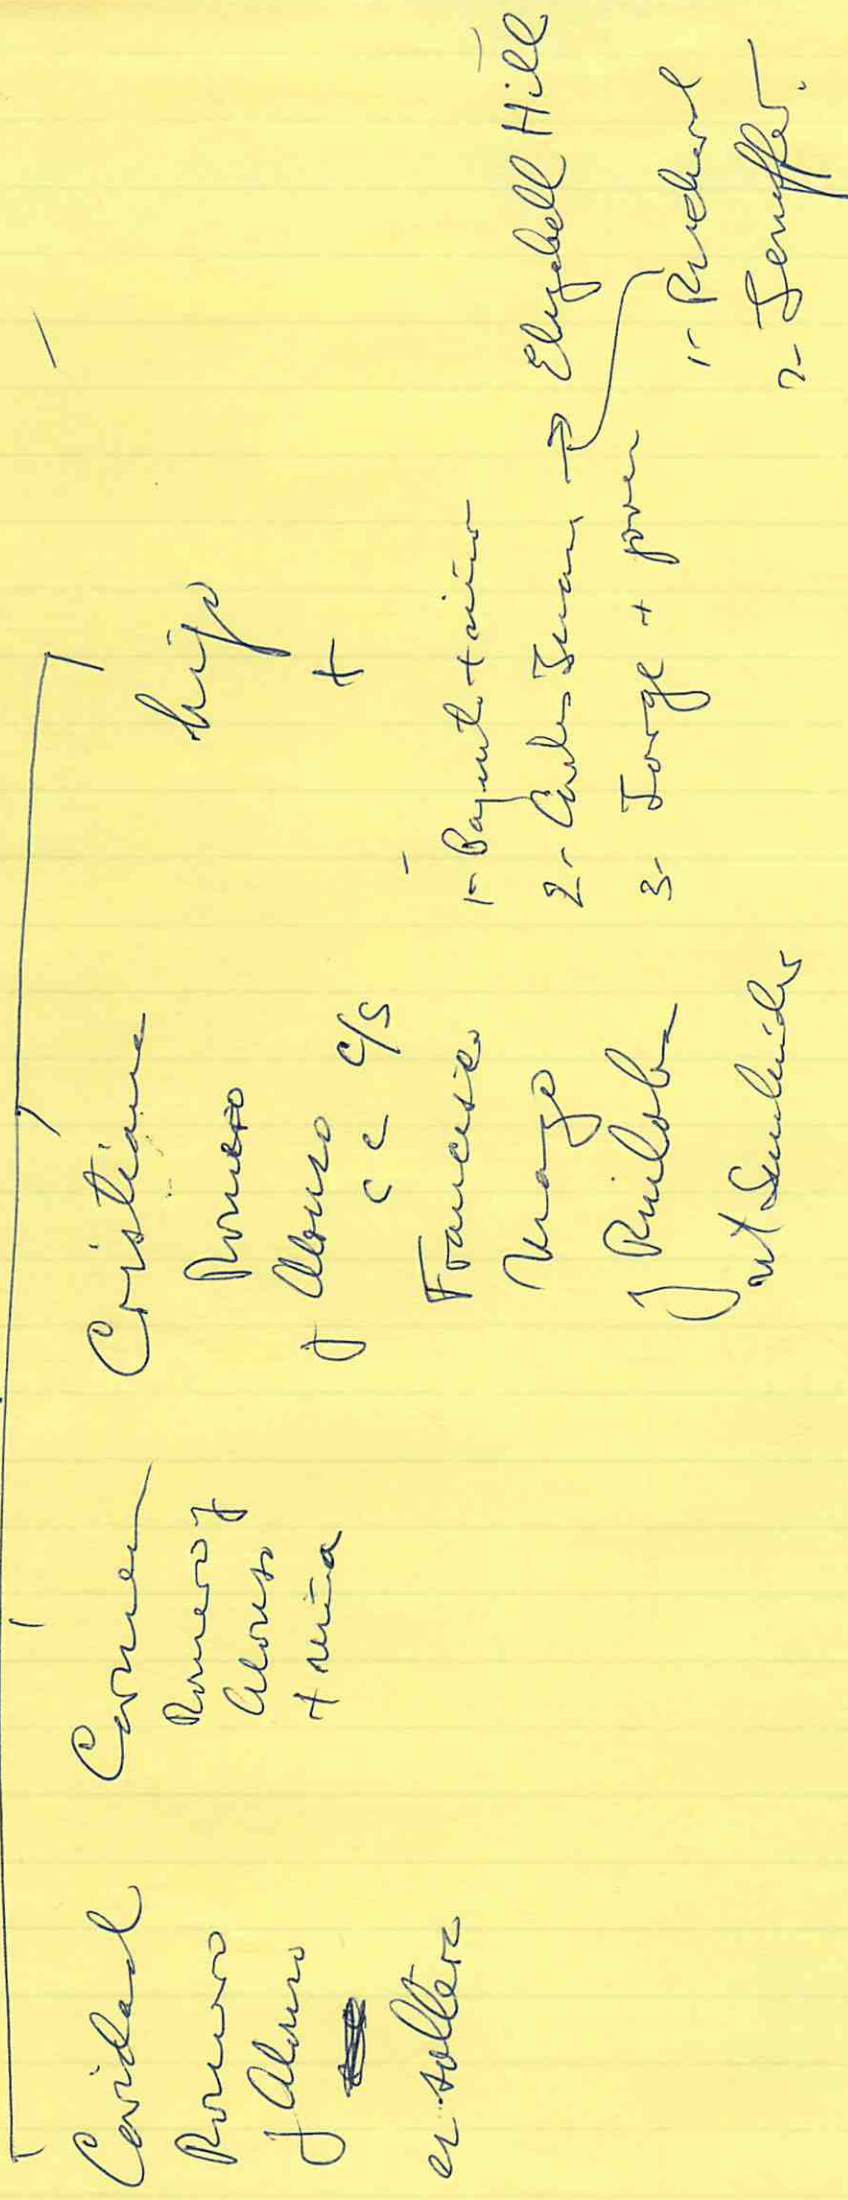 Caridad
Romero
y Alonso
es soltera
Carmen
Romero y
Alonso
+ niña
Cristina
Romero
y Alonso
c c c/s
Francisco
y Ruiloba
hijo
+
1- + niño
2- Carlos Juan → Elizabell Hill
3- Jorge + joven
1- Richard
2- Jeniffer.